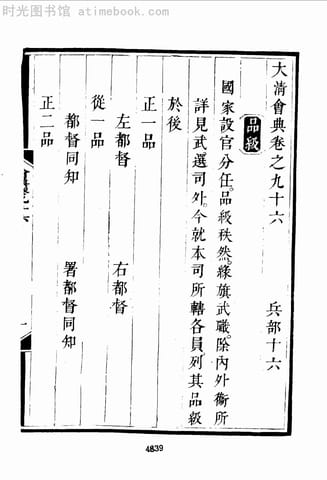 时光图书馆 - atimebook.com
大清會典卷之九十六　兵部十六
品級
國家設官分任。品級秩然。綠旗武職。除內外衛所
詳見武選司外。今就本司所轄各員。列其品級
於後
正一品
左都督　右都督
從一品
都督同知　署都督同知
正二品
4839